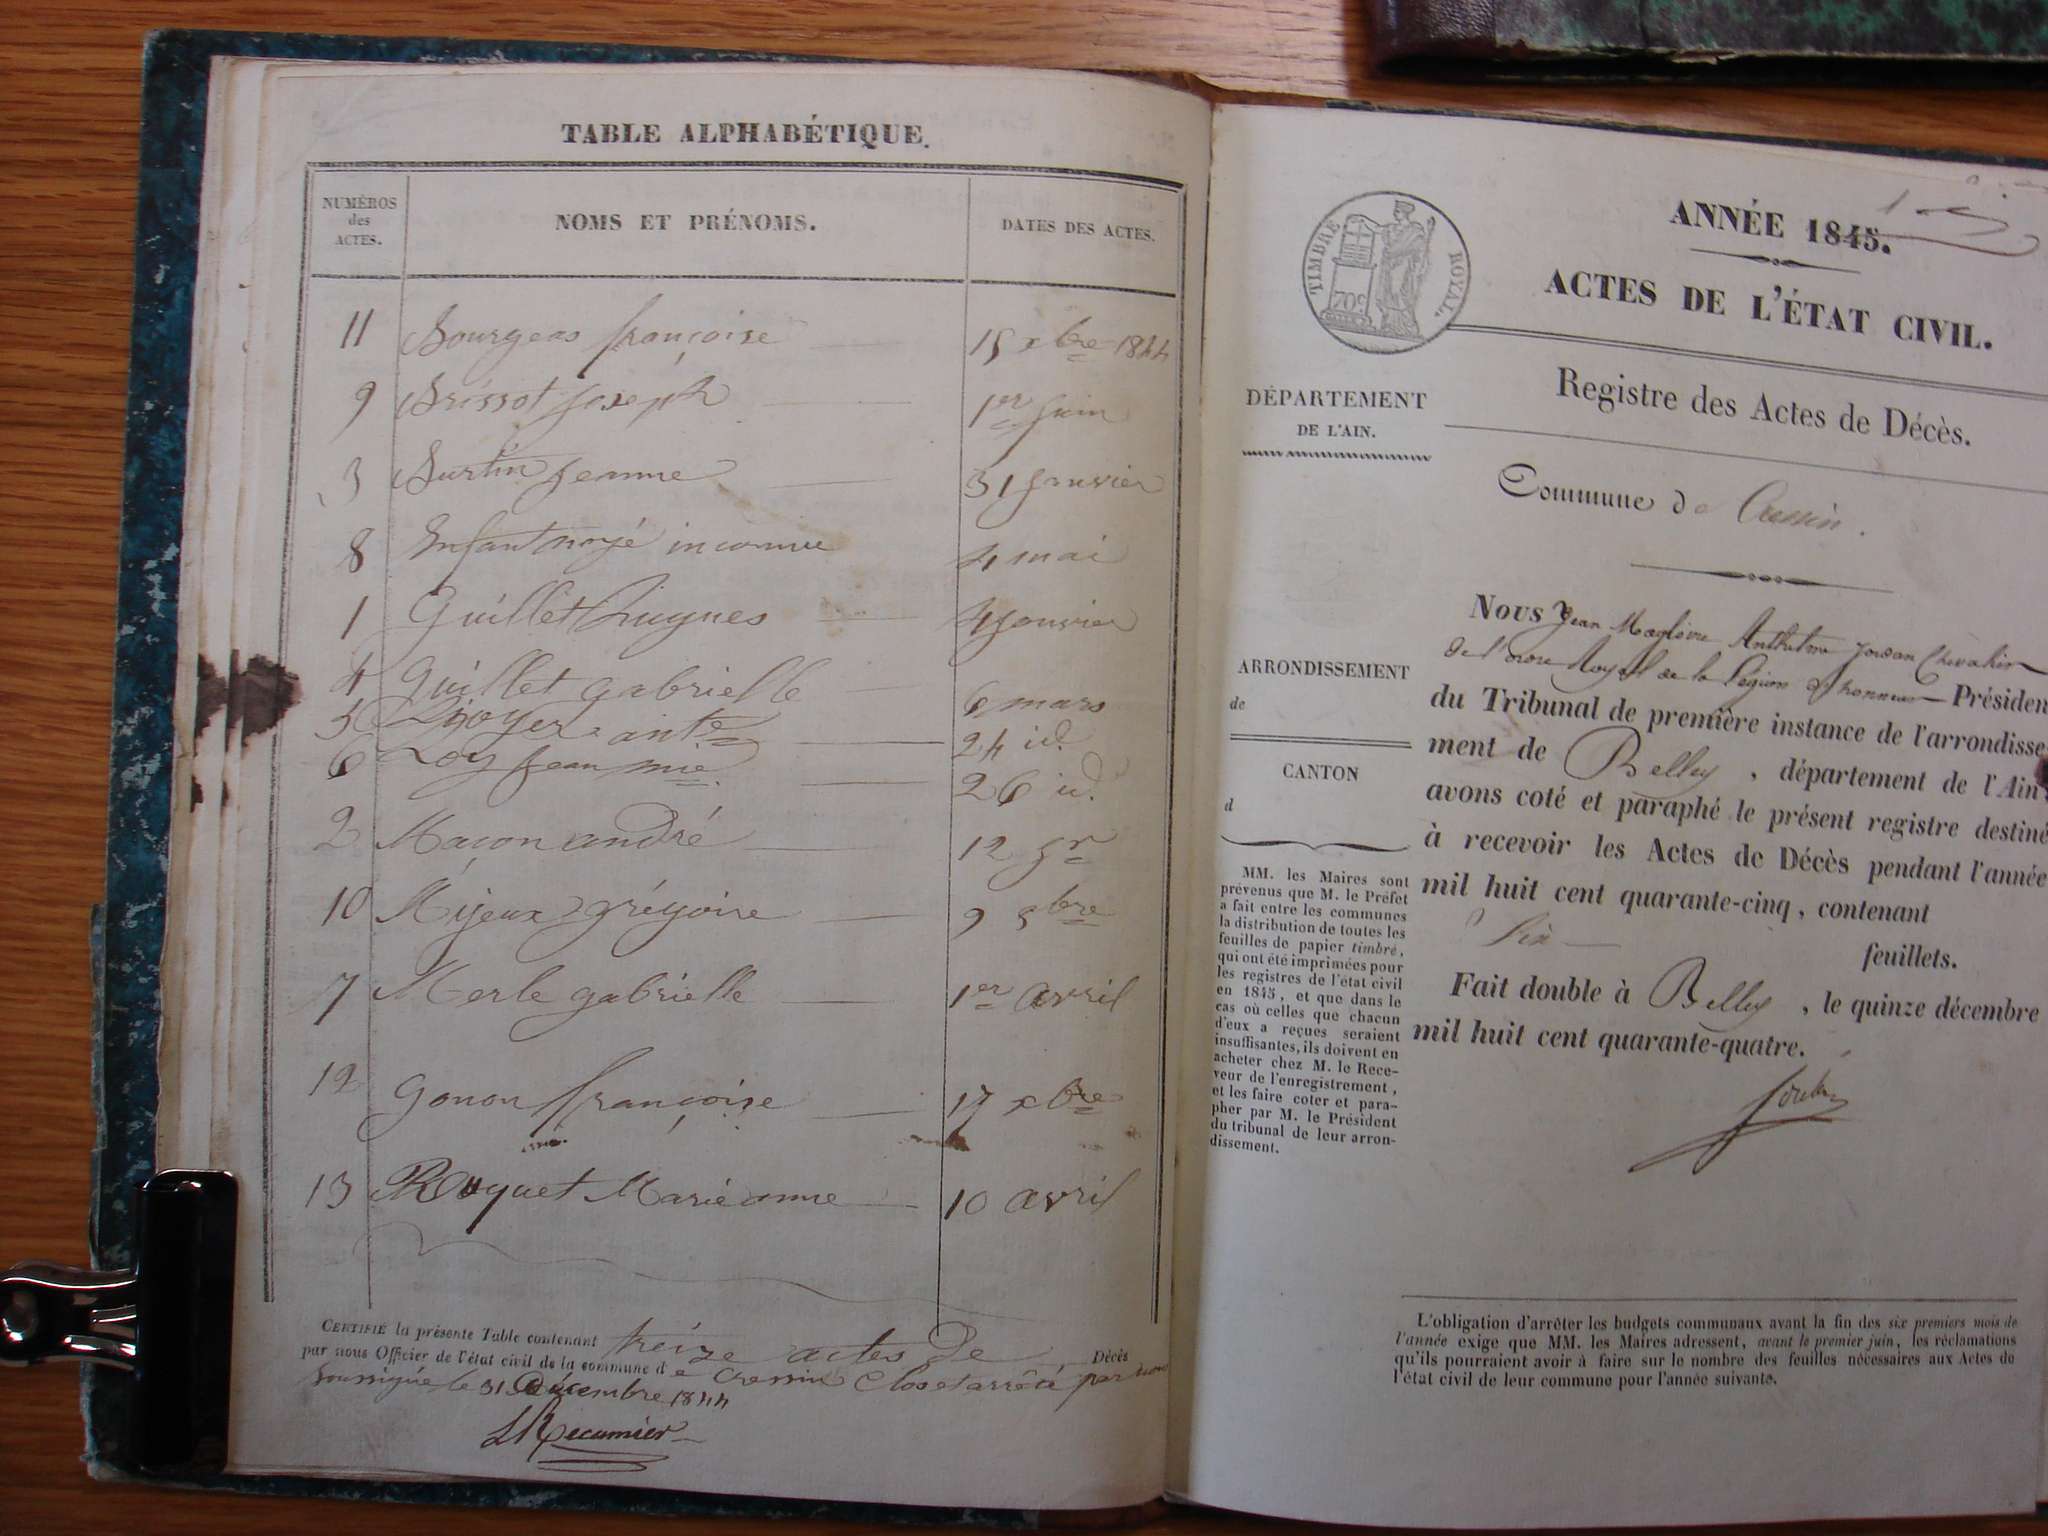 TABLE ALPHABÉTIQUE.
NUMÉROS des ACTES. NOMS ET PRÉNOMS. DATES DES ACTES.
11 Bourgeas françoise 15 xbre 1844
9 Brissot Joseph 1er Juin
3 Burtin Jeanne 31 Janvier
8 Enfant noyé inconnu 4 mai
1 Guillet hugues 4 Janvier
4 Guillet gabrielle 6 mars
5 24 id.
6 Loy Jean mie 26 id.
2 Maçon andré 12 Jr
10 Mijeux grégoire 9 8bre
7 Merle gabrielle 1er avril
12 Gonon françoise 17 xbre
13 Roquet Marie anne 10 avril
CERTIFIÉ la présente Table contenant treize actes de Décès
par nous Officier de l'état civil de la commune de Cressin Clos et arrêté par nous
soussigné le 31 Décembre 1844
LRecamier
ANNÉE 1845.
TIMBRE ROYAL.
70c
ACTES DE L'ÉTAT CIVIL.
Registre des Actes de Décès.
DÉPARTEMENT
DE L'AIN.
Commune de Cressin.
ARRONDISSEMENT
de
CANTON
d
MM. les Maires sont
prévenus que M. le Préfet
a fait entre les communes
la distribution de toutes les
feuilles de papier timbré,
qui ont été imprimées pour
les registres de l'état civil
en 1845, et que dans le
cas où celles que chacun
d'eux a reçues seraient
insuffisantes, ils doivent en
acheter chez M. le Rece-
veur de l'enregistrement,
et les faire coter et para-
pher par M. le Président
du tribunal de leur arron-
dissement.
Nous Jean Magloire Anthelme Chevalier
de l'ordre Royal de la Légion d'honneur Présiden
du Tribunal de première instance de l'arrondisse-
ment de Belley, département de l'Ain
avons coté et paraphé le présent registre destiné
à recevoir les Actes de Décès pendant l'année
mil huit cent quarante-cinq, contenant
Six feuillets.
Fait double à Belley, le quinze décembre
mil huit cent quarante-quatre.
L'obligation d'arrêter les budgets communaux avant la fin des six premiers mois de
l'année exige que MM. les Maires adressent, avant le premier juin, les réclamations
qu'ils pourraient avoir à faire sur le nombre des feuilles nécessaires aux Actes de
l'état civil de leur commune pour l'année suivante.